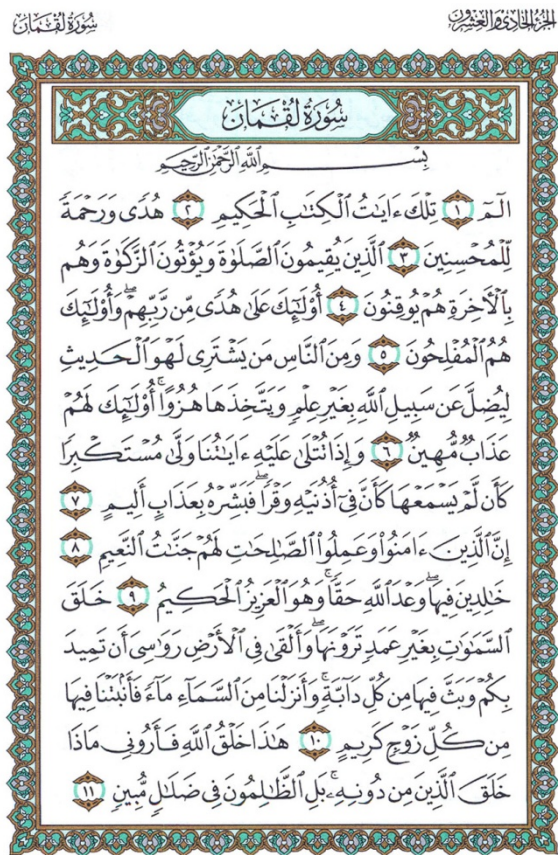 الجزء الحادي والعشرون
سُورَةُ لُقْمَان
سُورَةُ لُقْمَان
بِسْمِ ٱللَّهِ ٱلرَّحْمَٰنِ ٱلرَّحِيمِ
الٓمٓ ١ تِلْكَ ءَايَٰتُ ٱلْكِتَٰبِ ٱلْحَكِيمِ ٢ هُدًى وَرَحْمَةً
لِّلْمُحْسِنِينَ ٣ ٱلَّذِينَ يُقِيمُونَ ٱلصَّلَوٰةَ وَيُؤْتُونَ ٱلزَّكَوٰةَ وَهُم
بِٱلْأَخِرَةِ هُمْ يُوقِنُونَ ٤ أُوْلَٰٓئِكَ عَلَىٰ هُدًى مِّن رَّبِّهِمْۖ وَأُوْلَٰٓئِكَ
هُمُ ٱلْمُفْلِحُونَ ٥ وَمِنَ ٱلنَّاسِ مَن يَشْتَرِى لَهْوَ ٱلْحَدِيثِ
لِيُضِلَّ عَن سَبِيلِ ٱللَّهِ بِغَيْرِ عِلْمٍ وَيَتَّخِذَهَا هُزُوًاۚ أُوْلَٰٓئِكَ لَهُمْ
عَذَابٌ مُّهِينٌ ٦ وَإِذَا تُتْلَىٰ عَلَيْهِ ءَايَٰتُنَا وَلَّىٰ مُسْتَكْبِرًا
كَأَن لَّمْ يَسْمَعْهَا كَأَنَّ فِىٓ أُذُنَيْهِ وَقْرًاۖ فَبَشِّرْهُ بِعَذَابٍ أَلِيمٍ ٧
إِنَّ ٱلَّذِينَ ءَامَنُواْ وَعَمِلُواْ ٱلصَّٰلِحَٰتِ لَهُمْ جَنَّٰتُ ٱلنَّعِيمِ ٨
خَٰلِدِينَ فِيهَاۖ وَعْدَ ٱللَّهِ حَقًّاۚ وَهُوَ ٱلْعَزِيزُ ٱلْحَكِيمُ ٩ خَلَقَ
ٱلسَّمَٰوَٰتِ بِغَيْرِ عَمَدٍ تَرَوْنَهَاۖ وَأَلْقَىٰ فِى ٱلْأَرْضِ رَوَٰسِىَ أَن تَمِيدَ
بِكُمْ وَبَثَّ فِيهَا مِن كُلِّ دَآبَّةٍۚ وَأَنزَلْنَا مِنَ ٱلسَّمَآءِ مَآءً فَأَنۢبَتْنَا فِيهَا
مِن كُلِّ زَوْجٍ كَرِيمٍ ١٠ هَٰذَا خَلْقُ ٱللَّهِ فَأَرُونِى مَاذَا
خَلَقَ ٱلَّذِينَ مِن دُونِهِۦۚ بَلِ ٱلظَّٰلِمُونَ فِى ضَلَٰلٍ مُّبِينٍ ١١